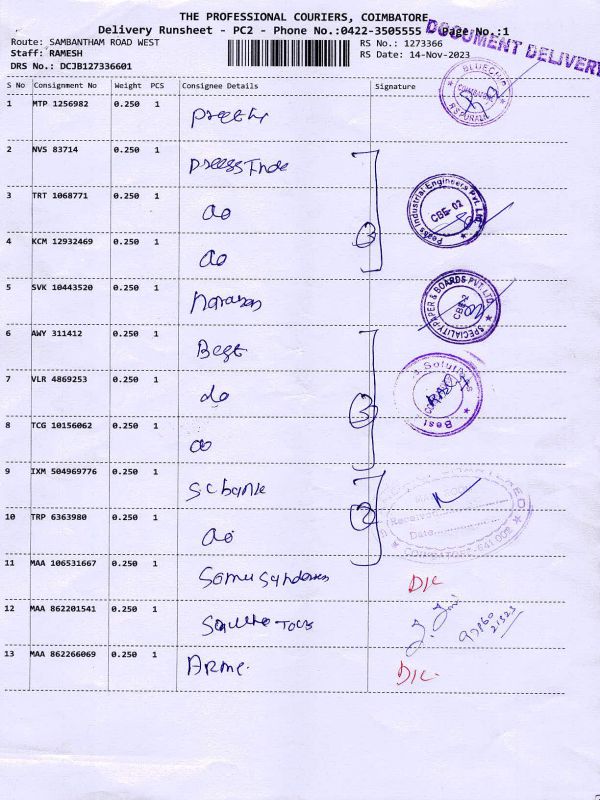 THE PROFESSIONAL COURIERS, COIMBATORE
Delivery Runsheet - PC2 - Phone No.:0422-3505555 Page No.:1
DOCUMENT DELIVERY
Route: SAMBANTHAM ROAD WEST RS No.: 1273366
Staff: RAMESH RS Date: 14-Nov-2023
DRS No.: DCJB127336601
S No Consignment No Weight PCS Consignee Details Signature
1 MTP 1256982 0.250 1
2 NVS 83714 0.250 1
3 TRT 1068771 0.250 1 do
Peabs Industrial Engineers Pvt. Ltd
CBE-02
3
4 KCM 12932469 0.250 1 do
5 SVK 10443520 0.250 1
SPECIALITY PAPER & BOARDS PVT. LTD.
CBE-2
6 AWY 311412 0.250 1 Best
7 VLR 4869253 0.250 1 do
Best Solutions
3
8 TCG 10156062 0.250 1 do
9 IXM 504969776 0.250 1 SC bank
10 TRP 6363980 0.250 1 do
2
Date
COIMBATORE-641 002
11 MAA 106531667 0.250 1 D/C
12 MAA 862201541 0.250 1
13 MAA 862266069 0.250 1 D/C